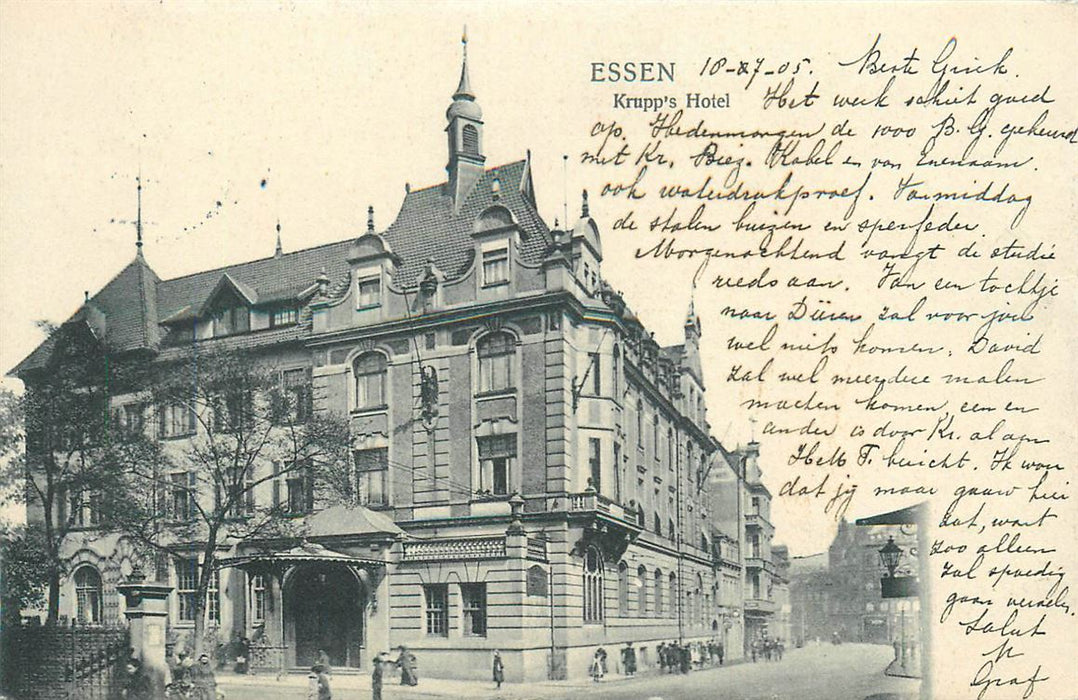 ESSEN 18-7-05. Beste Griek.
Krupp's Hotel Het werk schiet goed
op. Hedenmorgen de 1000 B. G. gekeurd
met Kr. Kabel en van
ook waterdrukproef. Vanmiddag
de stalen buizen en
Morgenochtend vangt de studie
reeds aan. Van een tochtje
naar Düren zal voor jou
wel niets komen. David
zal wel meerdere malen
moeten komen, een en
ander is door Kr. al aan
Hett F. bericht. Ik wou
dat jij maar gauw hier
zat, want
zoo alleen
zal spoedig
gaan vervelen.
Saluut
Graf